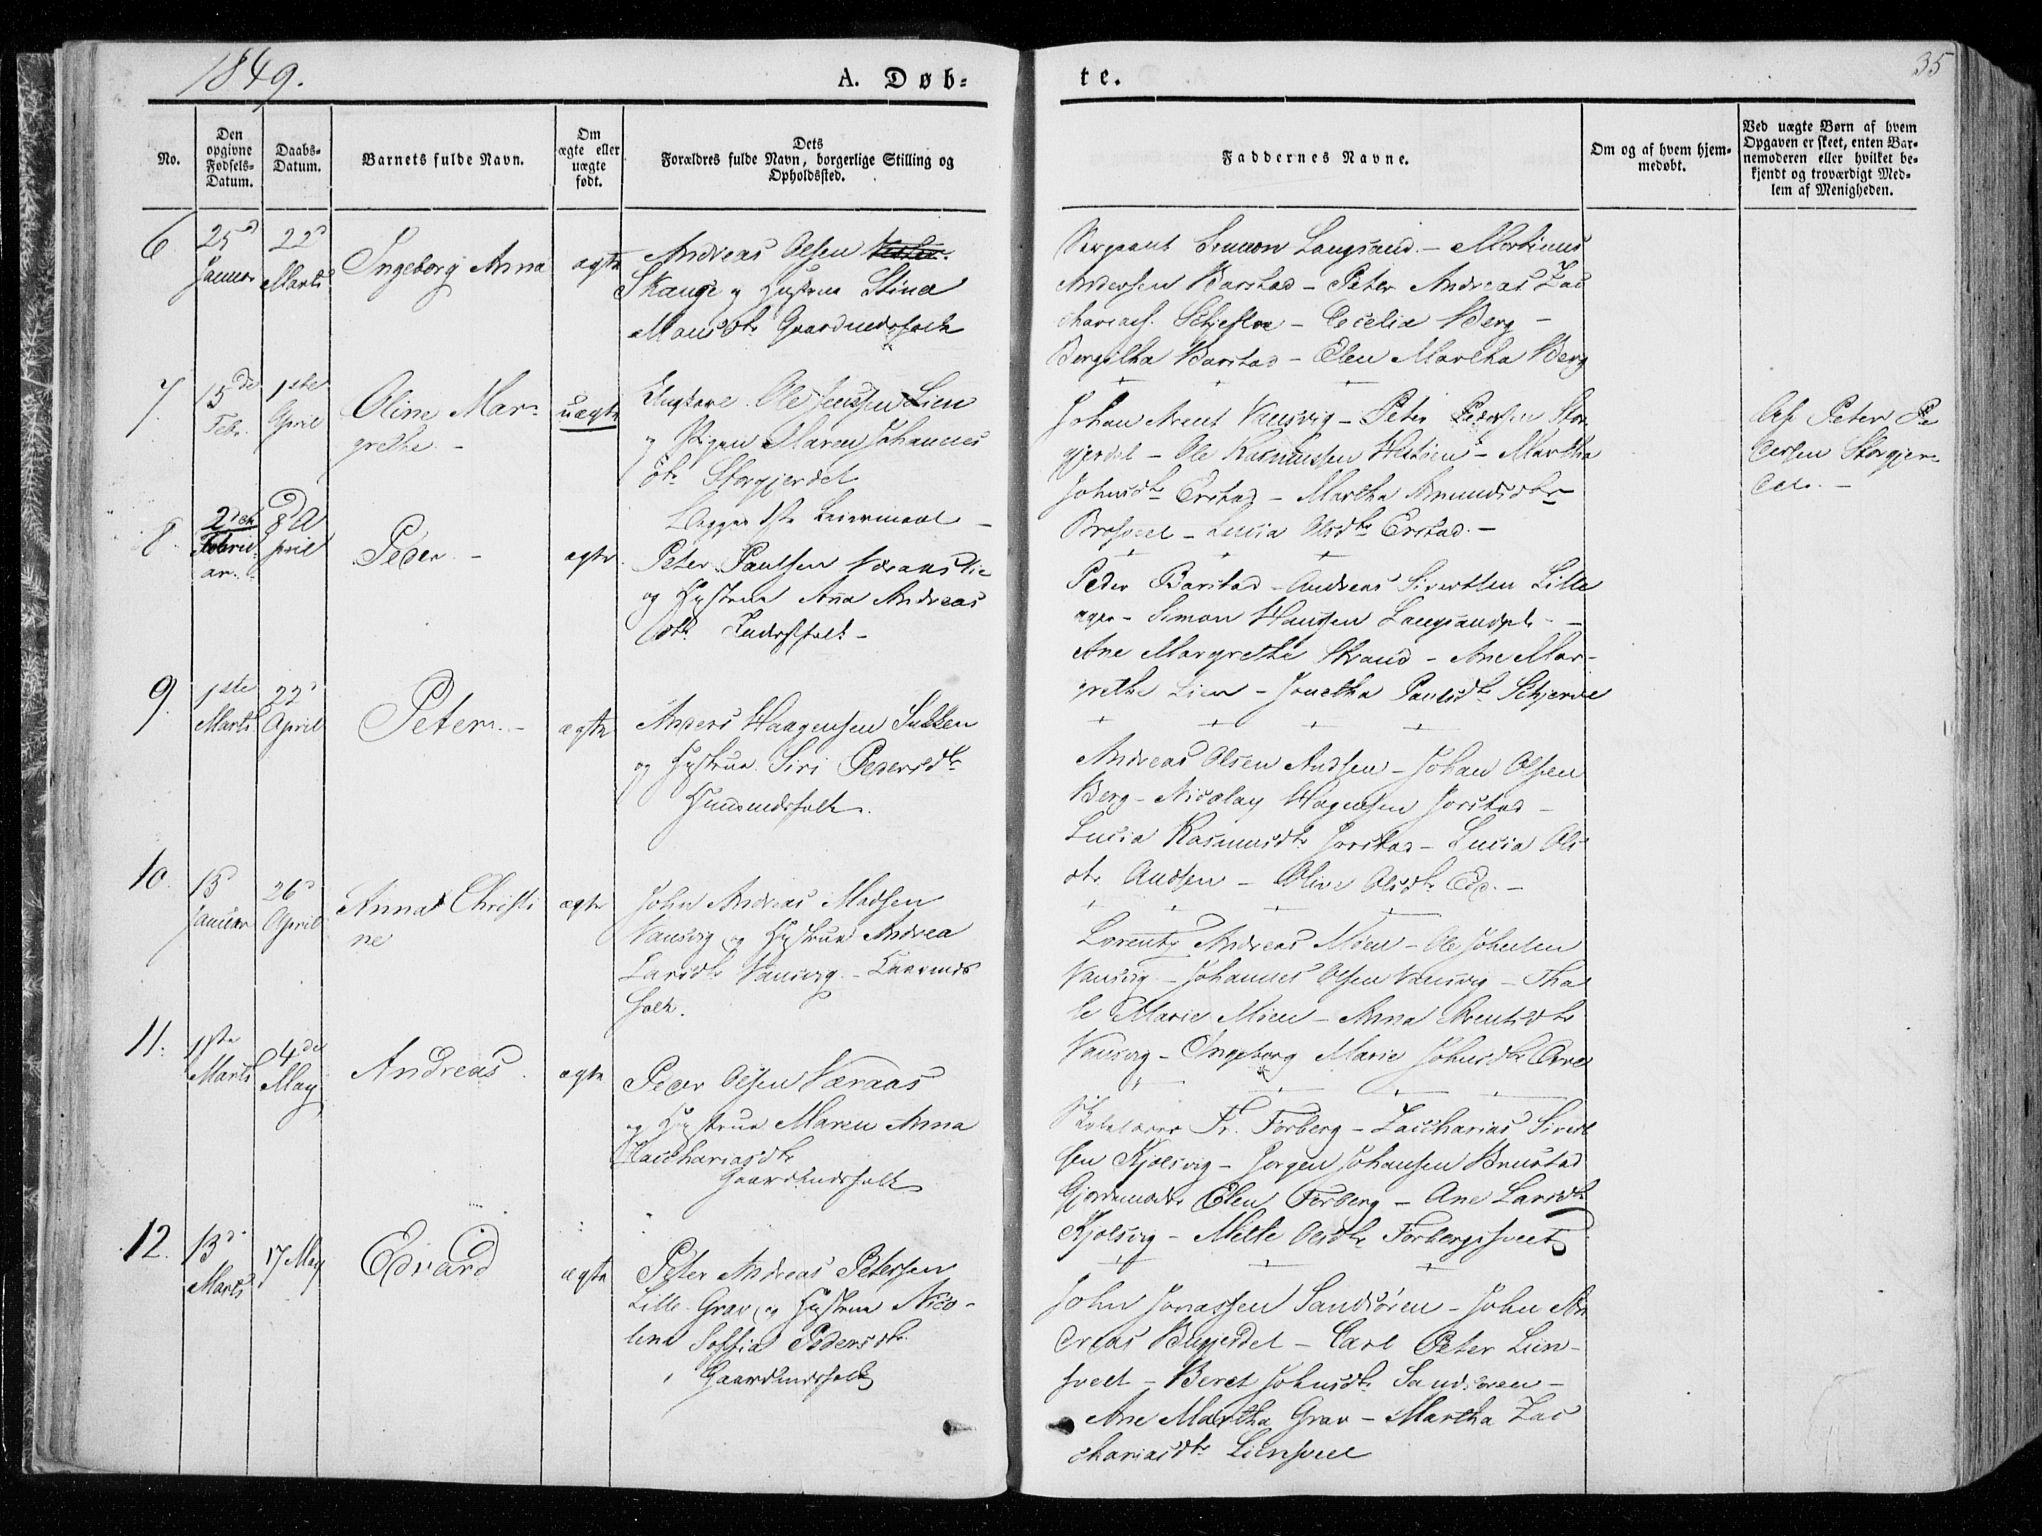 1849.
A. Døb-
te.
35
No.
Den
opgivne
Fødsels-
Datum.
Daabs-
Datum.
Barnets fulde Navn.
Om
ægte eller
uægte
født.
Dets
Forældres fulde Navn, borgerlige Stilling og
Opholdssted.
Faddernes Navne.
Om og af hvem hjem-
medøbt.
Ved uægte Børn af hvem
Opgaven er skeet, enten Bar-
nemoderen eller hvilket be-
kjendt og troværdigt Med-
lem af Menigheden.
6
25d
Januar
22d
Marts
Ingeborg Anna
ægte
Andreas Olsen
Skauge og Hustrue Stina
Monsdtr Gaardmandsfolk
Sergeant Simon Langsand - Martinus
Andersen Barstad - Peter Andreas Zac
chariass. Schjefloe - Cecelia Berg -
Bergitha Barstad - Elen Martha Berg
7.
15de
Febr.
1ste
April
Oline Mar-
grethe. -
uægte
Ungkarl Ole Jenssen Lien
og Pigen Maren Johannes
dtr Storgjerdet
Begges 1ste Leiermaal -
Johan Arent Vansvig - Peter Pedersen Stor
gjerdet - Ole Rasmussen Hestöen - Martha
Johnsdtr Erstad - Martha Amundsdtr
Brosveet - Lucia Olsdtr Erstad. -
Af Peter Pe
dersen Storgjer-
det. -
8.
2den
Februar
8d A
pril
Peder -
ægte.
Peter Paulsen
og Hustrue Anna Andreas
dtr Inderstfolk -
Peder Barstad - Andreas Sivertsen Lille
ager - Simon Hansen Langsandpl. -
Ane Margrethe Strand - Ane Mar-
grethe Lien - Jonetha Paulsdtr Schjerve
9.
1ste
Marts
22d
April
Peter. -
ægte
Anders Haagensen Sullen
og Hustrue Siri Pedersdtr
Huusmandsfolk.
Andreas Olsen Audsen - Johan Olsen
Berg - Nicolay Hagensen Jorstad -
Lucia Rasmusdtr Jorstad - Lucia Ols
dtr Audsen - Oline Olsdtr Ede. -
10.
15
Januar
26d
April
Anna Christi
ne
ægte
John Andreas Madsen
Vansvig og Hustrue Andrea
Larsdtr Vansvig - Gaarmds
folk.
Lorentz Andreas Moen - Ole Johnsen
Vansvig - Johannes Olsen Vansvig - Tha
le Marie Moen - Anna Arentsdtr
Vansvig - Ingeborg Marie Johnsdtr
11.
1ste
Marts
4de
May
Andreas
ægte
Peder Olsen Væraas
og Hustrue Maren Anna
Zacchariasdtr
Gaardmandsfolk
Skolelærer Fr. Forberg - Zaccharias Sivert
sen Kjølsvig - Jørgen Johansen Brustad
Gjordemoder Elen Forberg - Ane Larsdtr
Kjølsvig - Mette Olsdtr Forbergsveet
12.
13d
Marts
17 May
Edvard
ægte
Peter Andreas Petersen
Lille-Grav og Hustrue Nico-
lina Soffia Pedersdtr
Gaardmandsfolk
John Jonassen Sandsören - John An
dreas Byegjerdet - Carl Peter Lien-
sveet - Beret Johnsdtr Sandsören -
Ane Martha Grav - Martha Zac
chariasdtr Liensveet